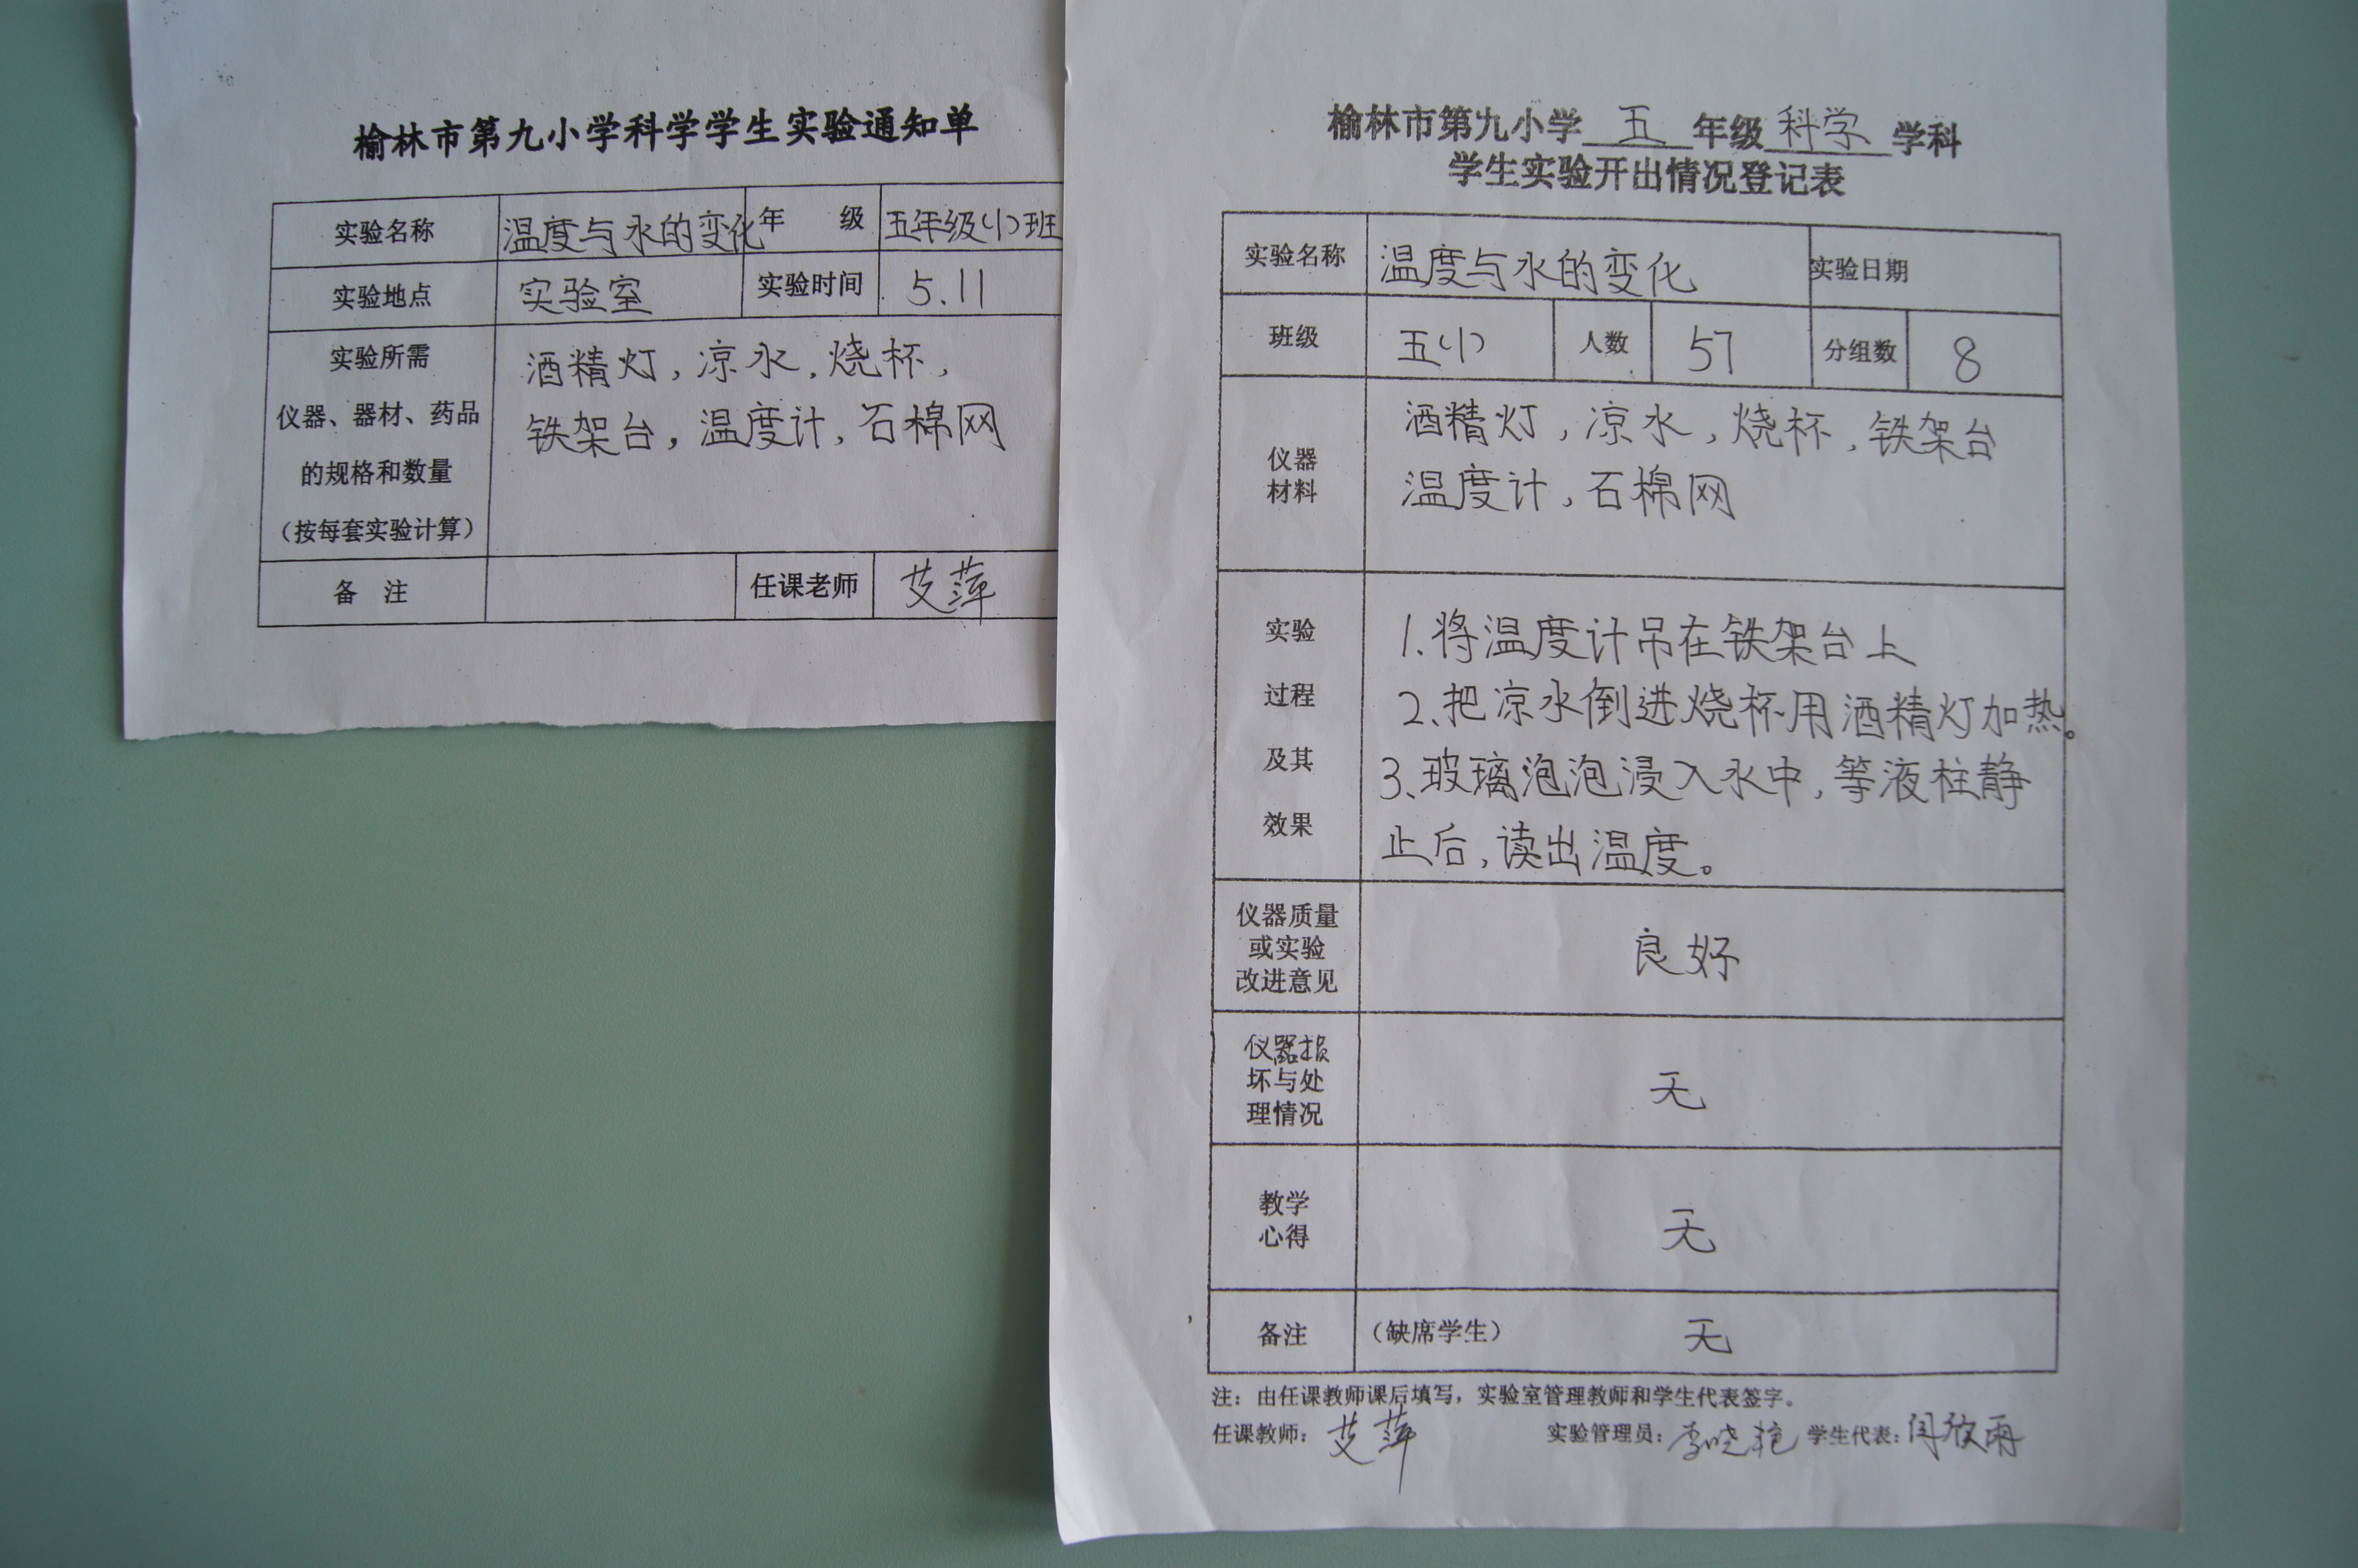 榆林市第九小学科学学生实验通知单
实验名称 温度与水的变化 年 级 五年级(1)班
实验地点 实验室 实验时间 5.11
实验所需
仪器、器材、药品
的规格和数量
（按每套实验计算）
酒精灯，凉水，烧杯，
铁架台，温度计，石棉网
备 注 任课老师 艾萍
榆林市第九小学 五 年级 科学 学科
学生实验开出情况登记表
实验名称 温度与水的变化 实验日期
班级 五(1) 人数 57 分组数 8
仪器
材料
酒精灯，凉水，烧杯，铁架台
温度计，石棉网
实验
过程
及其
效果
1、将温度计吊在铁架台上
2、把凉水倒进烧杯用酒精灯加热。
3、玻璃泡泡浸入水中，等液柱静
止后，读出温度。
仪器质量
或实验
改进意见
良好
仪器损
坏与处
理情况
无
教学
心得
无
备注 （缺席学生） 无
注：由任课教师课后填写，实验室管理教师和学生代表签字。
任课教师：艾萍 实验管理员：李晓艳 学生代表：闫欣雨